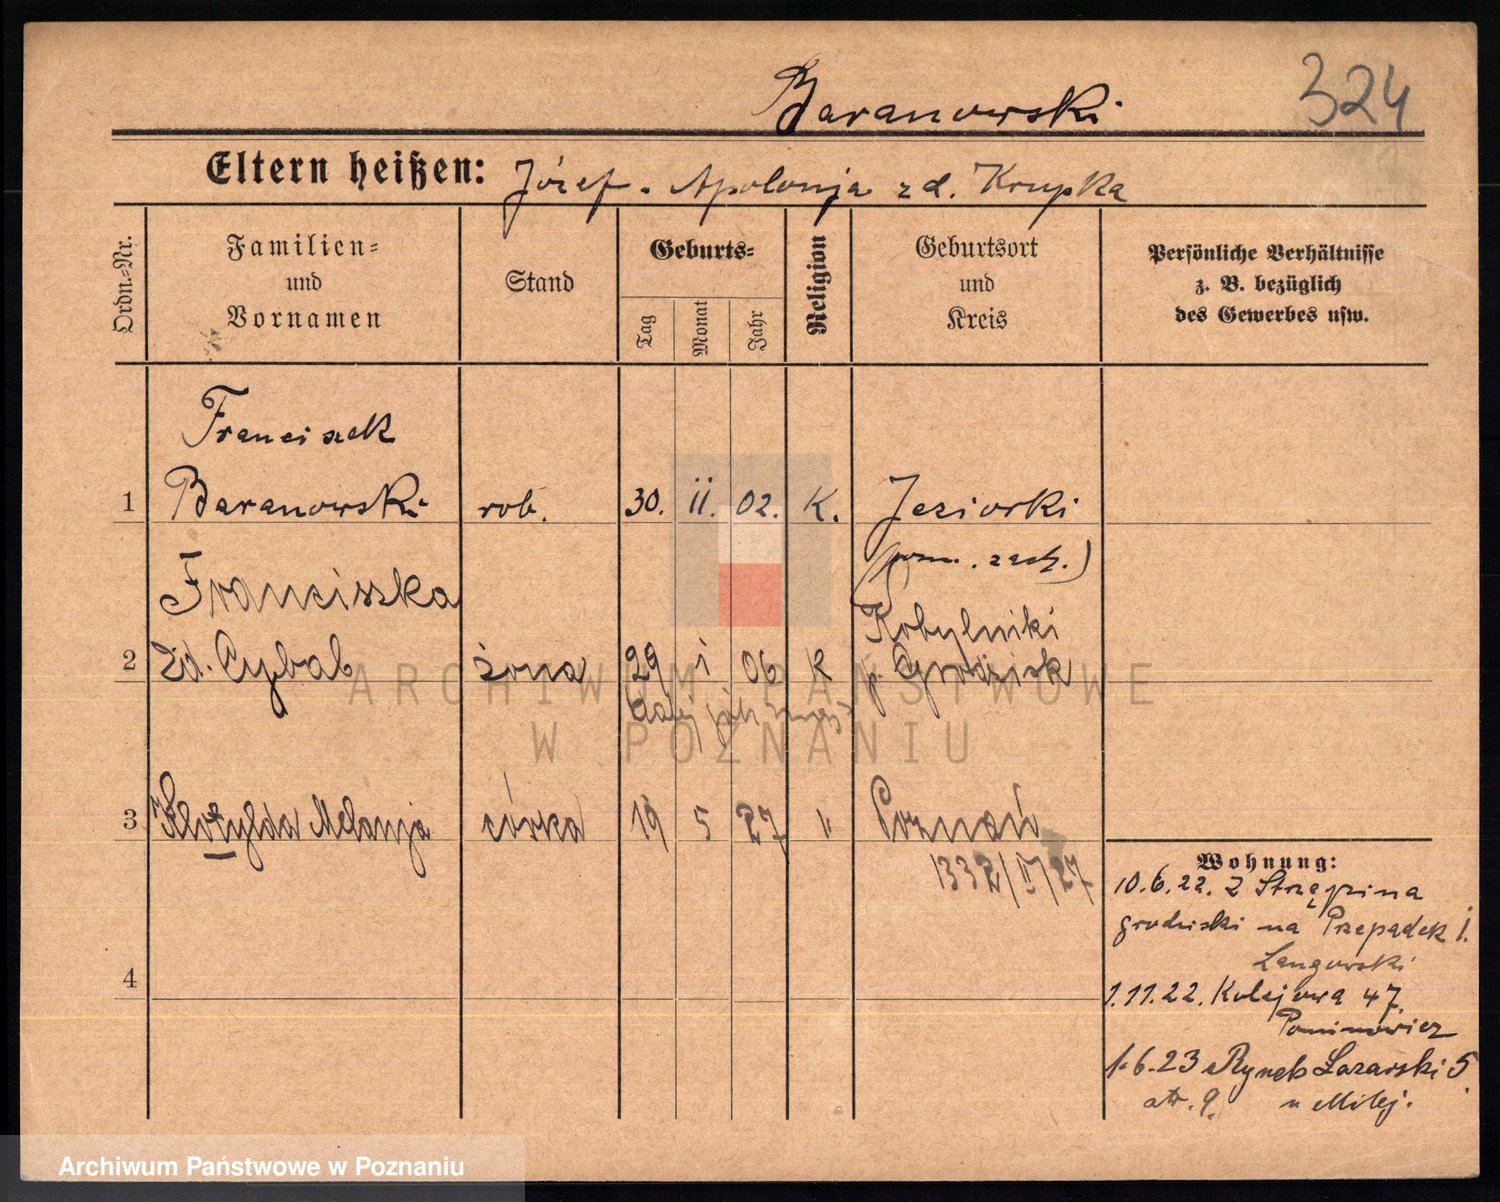 Baranowski
324
Eltern heißen: Józef - Apolonja zd. Krupka
Ordn.-Nr.
Familien-
und
Vornamen
Stand
Geburts-
Tag
Monat
Jahr
Religion
Geburtsort
und
Kreis
Persönliche Verhältnisse
z. B. bezüglich
des Gewerbes usw.
Franciszek
1 Baranowski rob. 30. ii. 02. K. Jeziorki
zach.)
Franciszka
Kobylniki
2 zd. Cybal żona 29 i 06 k p. Grodzisk
3 Melanja córka 19 5 27 " Poznań
1332/V/27
4
Wohnung:
10.6.22. Z Strzępina
grodziski na Przepadek 1.
Langowski
1.11.22. Kolejowa 47.
Pominowicz
1.6.23 Rynek Łazarski 5
str. 9. u Milej.
ARCHIWUM PAŃSTWOWE
W POZNANIU
Archiwum Państwowe w Poznaniu